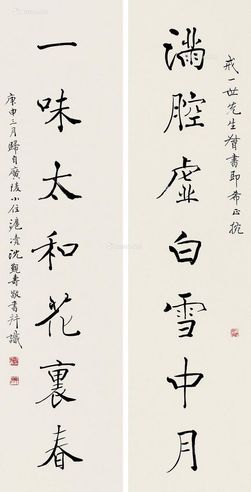 戒一世先生督書即希正捥
滿腔虛白雪中月
一味太和花裏春
庚申三月歸自廣陵小住滬瀆沈覲壽敬書幷識